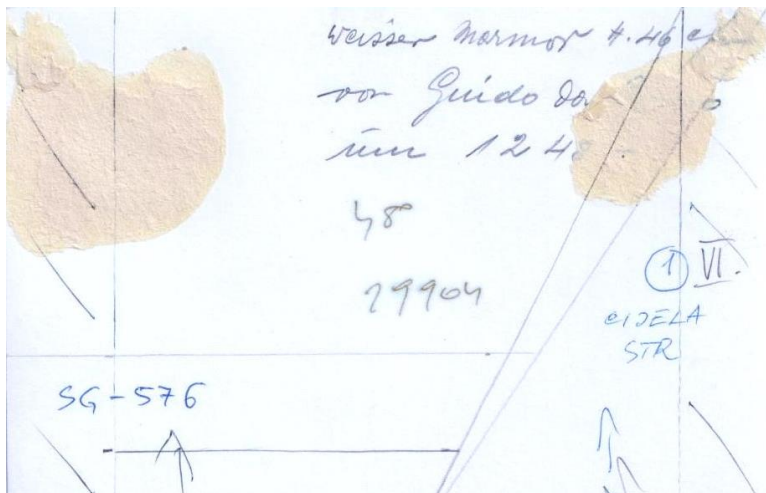 weisser Marmor H. 46 cm
von Guido da
um 1248
48
29904
1 VI.
CIJELA
STR
SG-576